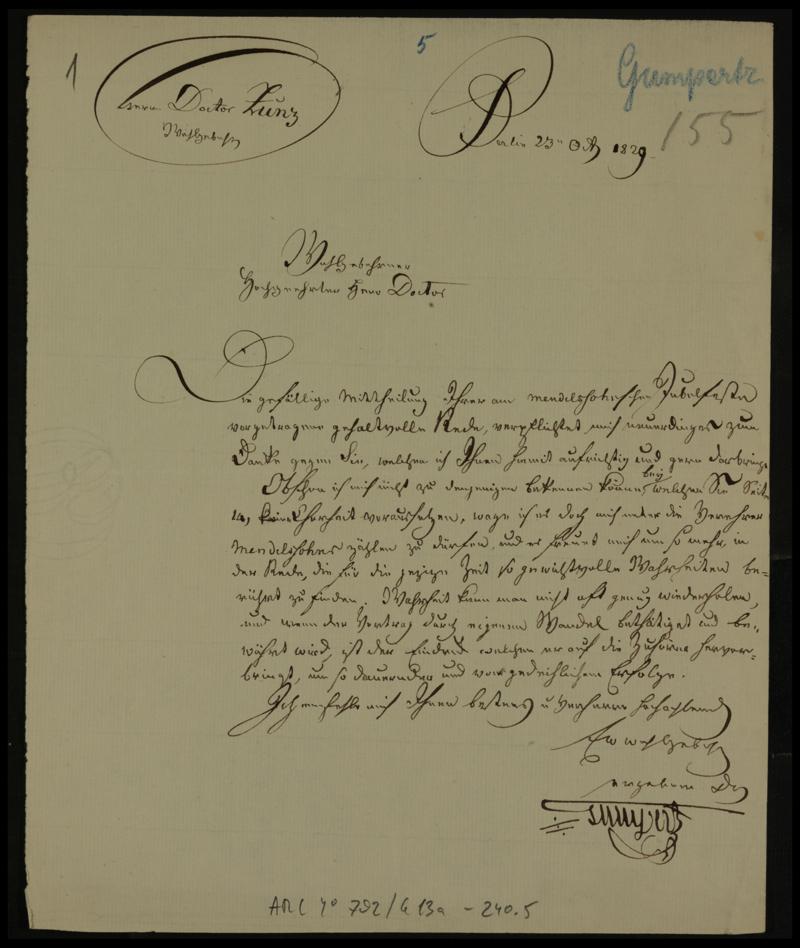 1
5
Gumpertz
155
Herrn Doctor Zunz
Wohlgeborn
Berlin 23n Oct 1829.
Wohlgebohrner
Hochgeehrter Herr Doctor
Die gefällige Mittheilung Ihrer am Mendelsohnschen Jubelfeste
vorgetragene gehaltvolle Rede, verpflichtet mich neuerdings zum
Danke gegen Sie, welchen ich Ihnen hiemit aufrichtig und gern darbringe.
Obschon ich mich nicht zu denjenigen bekennen könne, bey welchen Sie Seite
14, keine Thorheit voraussetzen, wage ich es doch mich unter die Verehrer
Mendelsohns zählen zu dürfen, und es freuet mich um so mehr, in
der Rede, die für die jezige Zeit so gewichtvolle Wahrheiten be-
rührt zu finden. Wahrheit kann man nicht oft genug wiederholen,
und wenn der Vortrag durch eigenen Wandel bethätiget und be-
währt wird, ist der Eindruck welchen er auf die Zuhörer hervor-
bringt, um so dauernder und von gedeihlichem Erfolge.
Ich empfehle mich Ihnen bestens u verharre hochachtend
Ew wohlgeborn
ergebener Dr
Gumpertz
ARC 4° 792/G 13a - 240.5